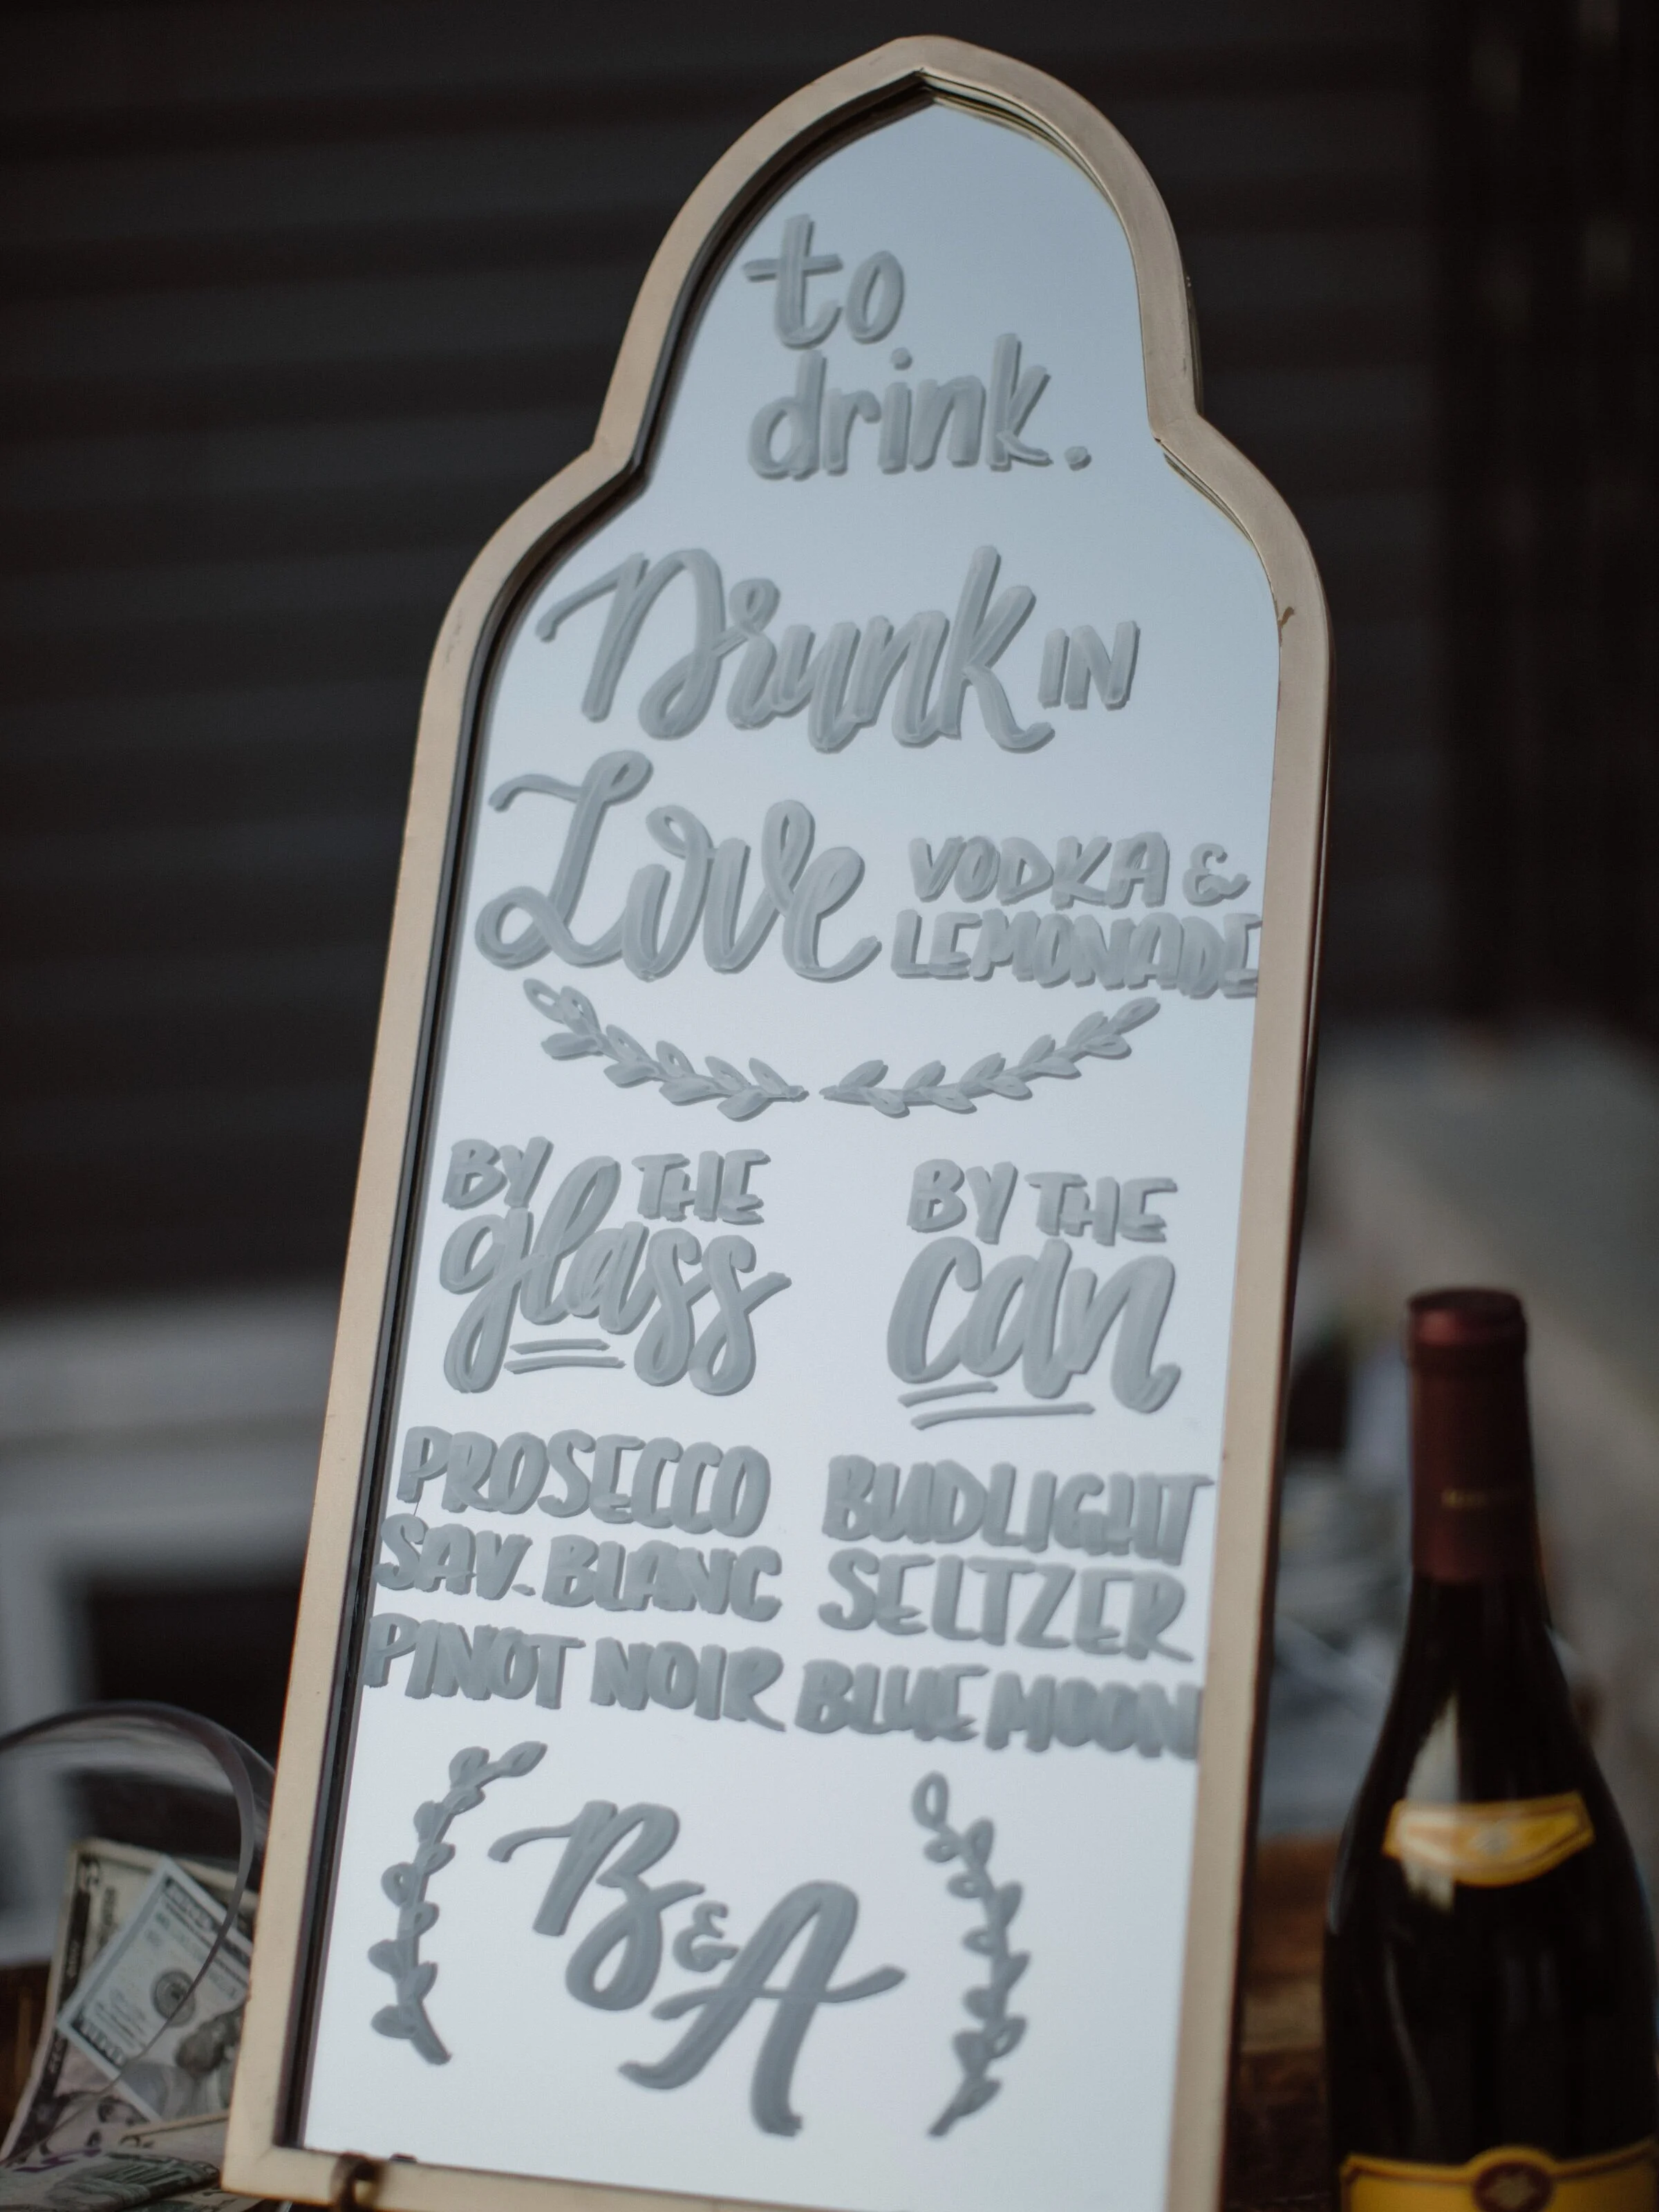 to
drink.
Drunk IN
Love VODKA &
LEMONADE
BY THE
glass
PROSECCO
SAV. BLANC
PINOT NOIR
BY THE
can
BUDLIGHT
SELTZER
BLUE MOON
B & A